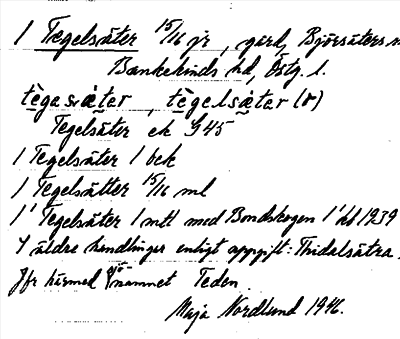 1 Tegelsäter 15/16 jr, gård, Björsäters
Bankekinds hd, Östg. l.
tègasæ̀ter, tègelsæ̀ter (r)
Tegelsäter ek G45
1 Tegelsäter 1 bek
1 Tegelsätter 15/16 ml
1' Tegelsäter 1 mtl med Bondskogen 1' kb 1939
I äldre handlingar enligt uppgift: Thidalsätra.
Jfr härmed sjönamnet Teden.
Maja Nordlund 1946.